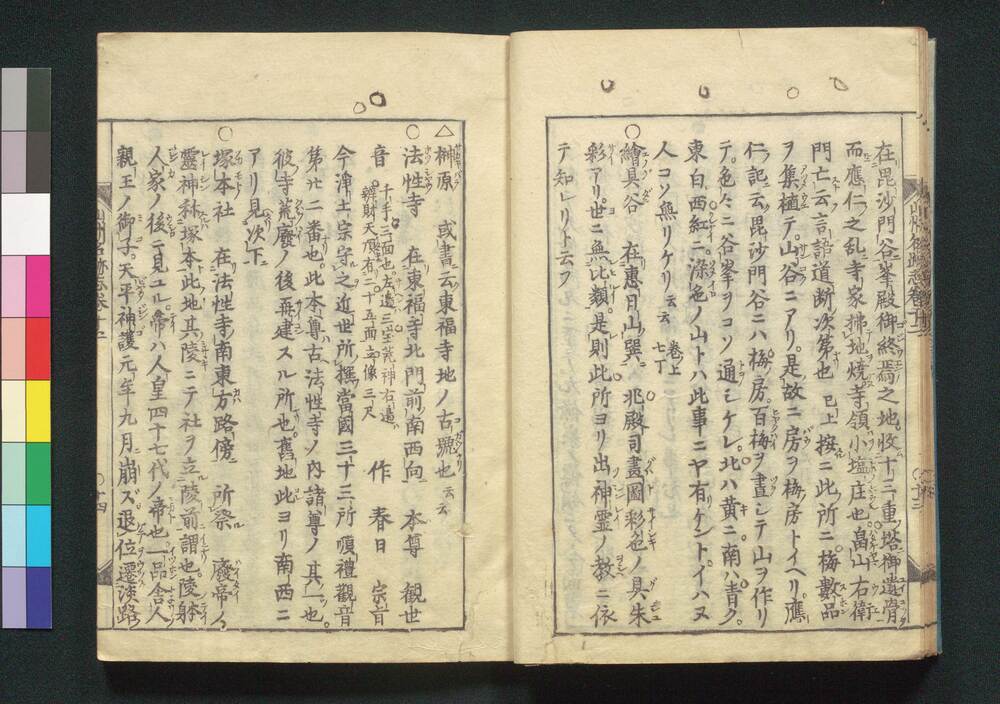 在毘沙門谷峯殿御終焉之地收十三重ノ塔御遺骨
而應仁之乱寺家拂地燒寺領小塩庄也畠山右衛
門亡云言語道断次第也 已上 按ニ此ノ所ニ梅數品
ヲ集植テ山谷ニアリ是故ニ房ヲ梅房トイヘリ應
仁記云毘沙門谷ニハ梅房百梅ヲ畫シテ山ヲ作リ
テ色々ニ谷峯ヲコソ通シケレ北ハ黄ニ南ハ青ク
東白西紅ニ深色ノ山トハ此事ニヤ有ケントイハヌ
人コソ無リケリ 云云 卷上 七丁
○繪具谷 在惠日山巽 兆殿司畫圖彩色ノ具朱
彩アリ世ニ無比類是則此所ヨリ出神靈ノ教ニ依
テ知レリト云フ
△榊原 或書云東福寺地ノ古號也 云云
○法性寺 在東福寺北門前南西向 本尊 觀世
音 千手三面也左邊三宝荒神右邊辨財天頂有二十五面立像三尺 作 春日 宗旨
今淨土宗守之近世所撰當國三十三所順禮觀音
第廿二番也此本尊古法性寺ノ内諸尊ノ其一也
彼寺荒廢ノ後再建スル所也舊地此ヨリ南西ニ
アリ見次下
○塚本社 在法性寺南東方路傍 所祭 廢帝ノ
靈神称塚本此地其陵ニテ社ヲ立陵前謂也陵躰
人家ノ後ニ見ユル帝ハ人皇四十七代ノ帝也一品舎人
親王ノ御子天平神護元年九月崩ズ退位遷淡路
山州名跡志卷十二
○十三
山州名跡志卷十二
○十四